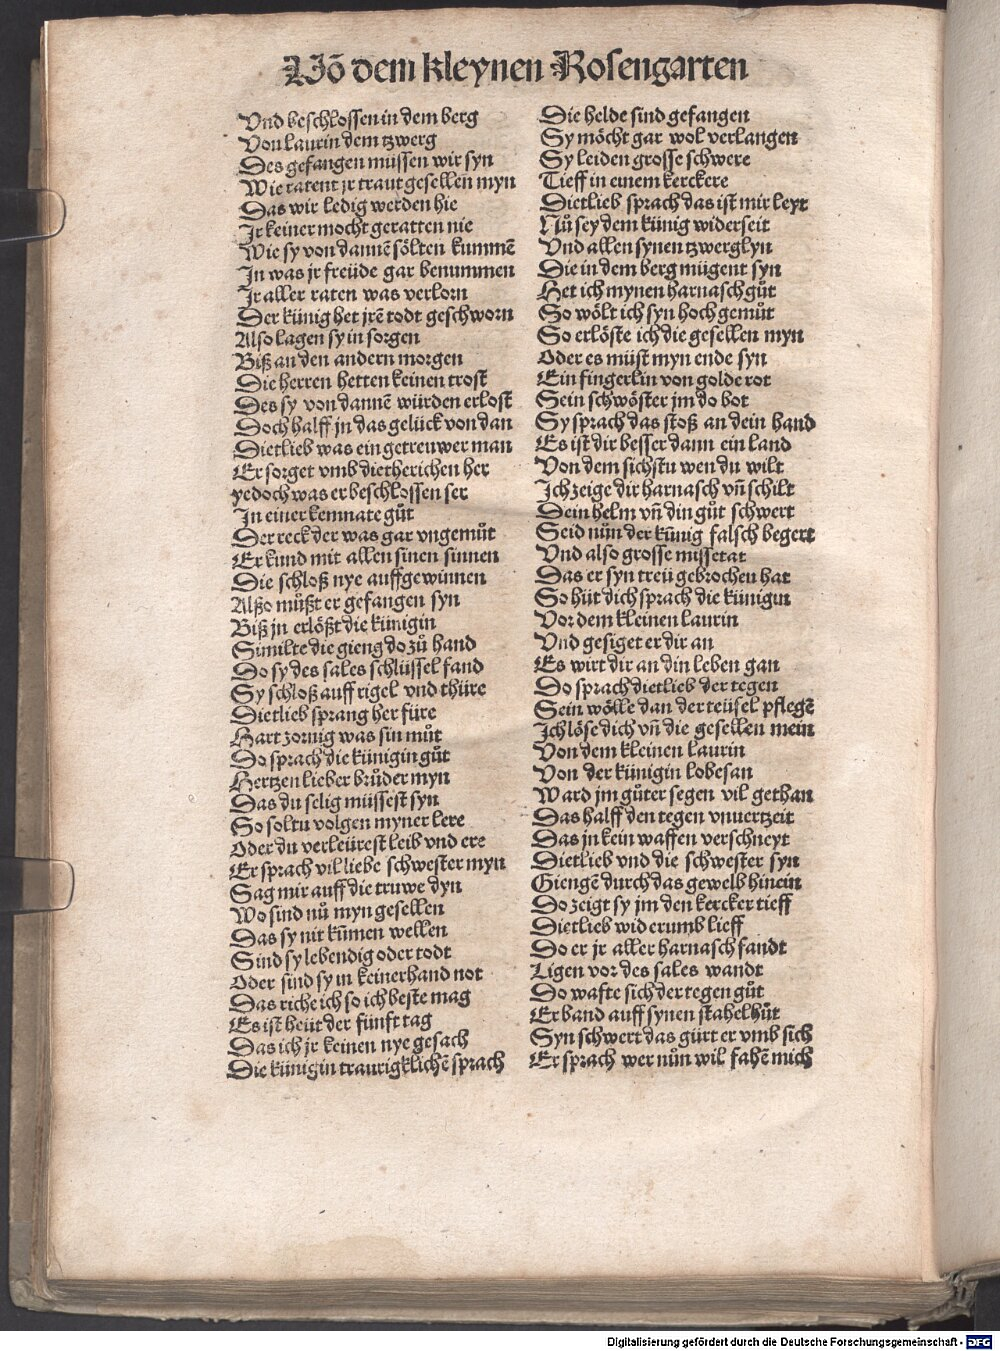 Võ dem kleynen Rosengarten
Vnd beschlossen in dem berg
Von Laurin dem tzwerg
Des gefangen müssen wir syn
Wie ratent jr traut gesellen myn
Das wir ledig werden hie
Jr keiner mocht geratten nie
Wie sy von dannē sölten kummē
In was jr freüde gar benummen
Jr aller raten was verlorn
Der künig het jrē todt geschworn
Also lagen sy in sorgen
Biß an den andern morgen
Die herren hetten keinen trost
Des sy von dannē würden erlost
Doch halff jn das gelück von dan
Dietlieb was ein getreuwer man
Er sorget vmb dietherichen her
yedoch was er beschlossen ser
In einer kemnate gůt
Der reck der was gar vngemůt
Er kund mit allen sinen sinnen
Die schloß nye auffgewinnen
Alßo můßt er gefangen syn
Biß jn erlößt die künigin
Similte die gieng do zů hand
Do sy des sales schlüssel fand
Sy schloß auff rigel vnd thüre
Dietlieb sprang her füre
Hart zornig was sin můt
Do sprach die künigin gůt
Hertzen lieber brůder myn
Das du selig müssest syn
So soltu volgen myner lere
Oder du verleürest leib vnd ere
Er sprach vil liebe schwester myn
Sag mir auff die truwe dyn
Wo sind nů myn gesellen
Das sy nit kūmen wellen
Sind sy lebendig oder todt
Oder sind sy in keinerhand not
Das riche ich so ich beste mag
Es ist heüt der fünft tag
Das ich jr keinen nye gesach
Die künigin traurigklichē sprach
Die helde sind gefangen
Sy möcht gar wol verlangen
Sy leiden grosse schwere
Tieff in einem kerckere
Dietlieb sprach das ist mir leyt
Nů sey dem künig widerseit
Vnd allen synen tzwerglyn
Die in dem berg mügent syn
Het ich mynen harnasch gůt
So wölt ich syn hochgemůt
So erlöste ich die gesellen myn
Oder es müst myn ende syn
Ein fingerlin von golde rot
Sein schwöster jm do bot
Sy sprach das stoß an dein hand
Es ist dir besser dann ein land
Von dem sichstu wen du wilt
Ich zeige dir harnasch vñ schilt
Dein helm vñ din gůt schwert
Seid nůn der kūnig falsch begert
Vnd also grosse missetat
Das er syn treü gebrochen hat
So hüt dich sprach die künigin
Vor dem kleinen laurin
Vnd gesiget er dir an
Es wirt dir an din leben gan
Do sprach dietlieb der tegen
Sein wölle dan der teüfel pflegē
Ich löse dich vñ die gesellen mein
Von dem kleinen laurin
Von der künigin lobesan
Ward jm gůter segen vil gethan
Das halff den tegen vnuertzeit
Das jn kein waffen verschneyt
Dietlieb vnd die schwester syn
Giengē durch das gewelb hinein
Do zeigt sy jm den kercker tieff
Dietlieb widerumb lieff
Do er jr aller harnasch fandt
Ligen vor des sales wandt
Do wafte sich der tegen gůt
Er band auff synen stahelhůt
Syn schwert das gürt er vmb sich
Er sprach wer nůn wil fahē mich
Digitalisierung gefördert durch die Deutsche Forschungsgemeinschaft - DFG